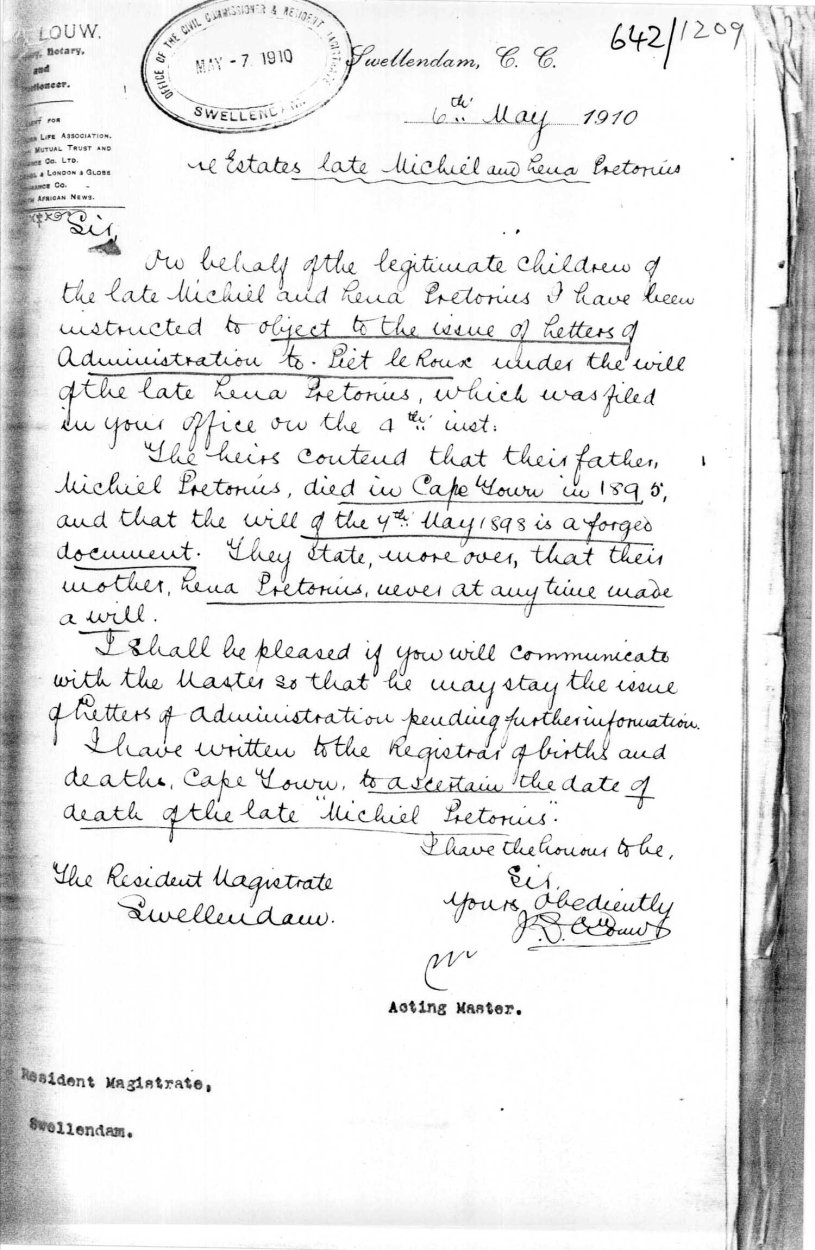 LOUW.
Notary,
and
FOR
LIFE ASSOCIATION.
MUTUAL TRUST AND
CO. LTD.
& LONDON & GLOBE
CO.
AFRICAN NEWS.
OFFICE OF THE CIVIL COMMISSIONER & RESIDENT MAGISTRATE
MAY -7 1910
SWELLENDAM
642/1209
Swellendam, C. C.
6th May 1910
re Estates late Michiel and Lena Pretorius
Sir,
On behalf of the legitimate children of
the late Michiel and Lena Pretorius I have been
instructed to object to the issue of Letters of
Administration to Piet le Roux under the will
of the late Lena Pretorius, which was filed
in your office on the 4th inst:
The heirs contend that their father,
Michiel Pretorius, died in Cape Town in 1895,
and that the will of the 7th May 1898 is a forged
document. They state, more over, that their
mother, Lena Pretorius, never at any time made
a will.
I shall be pleased if you will communicate
with the Master so that he may stay the issue
of Letters of Administration pending further information.
I have written to the Registrar of births and
deaths, Cape Town, to ascertain the date of
death of the late "Michiel Pretorius".
I have the honour to be,
Sir,
Yours Obediently
Louw
The Resident Magistrate
Swellendam.
Acting Master.
Resident Magistrate,
Swellendam.